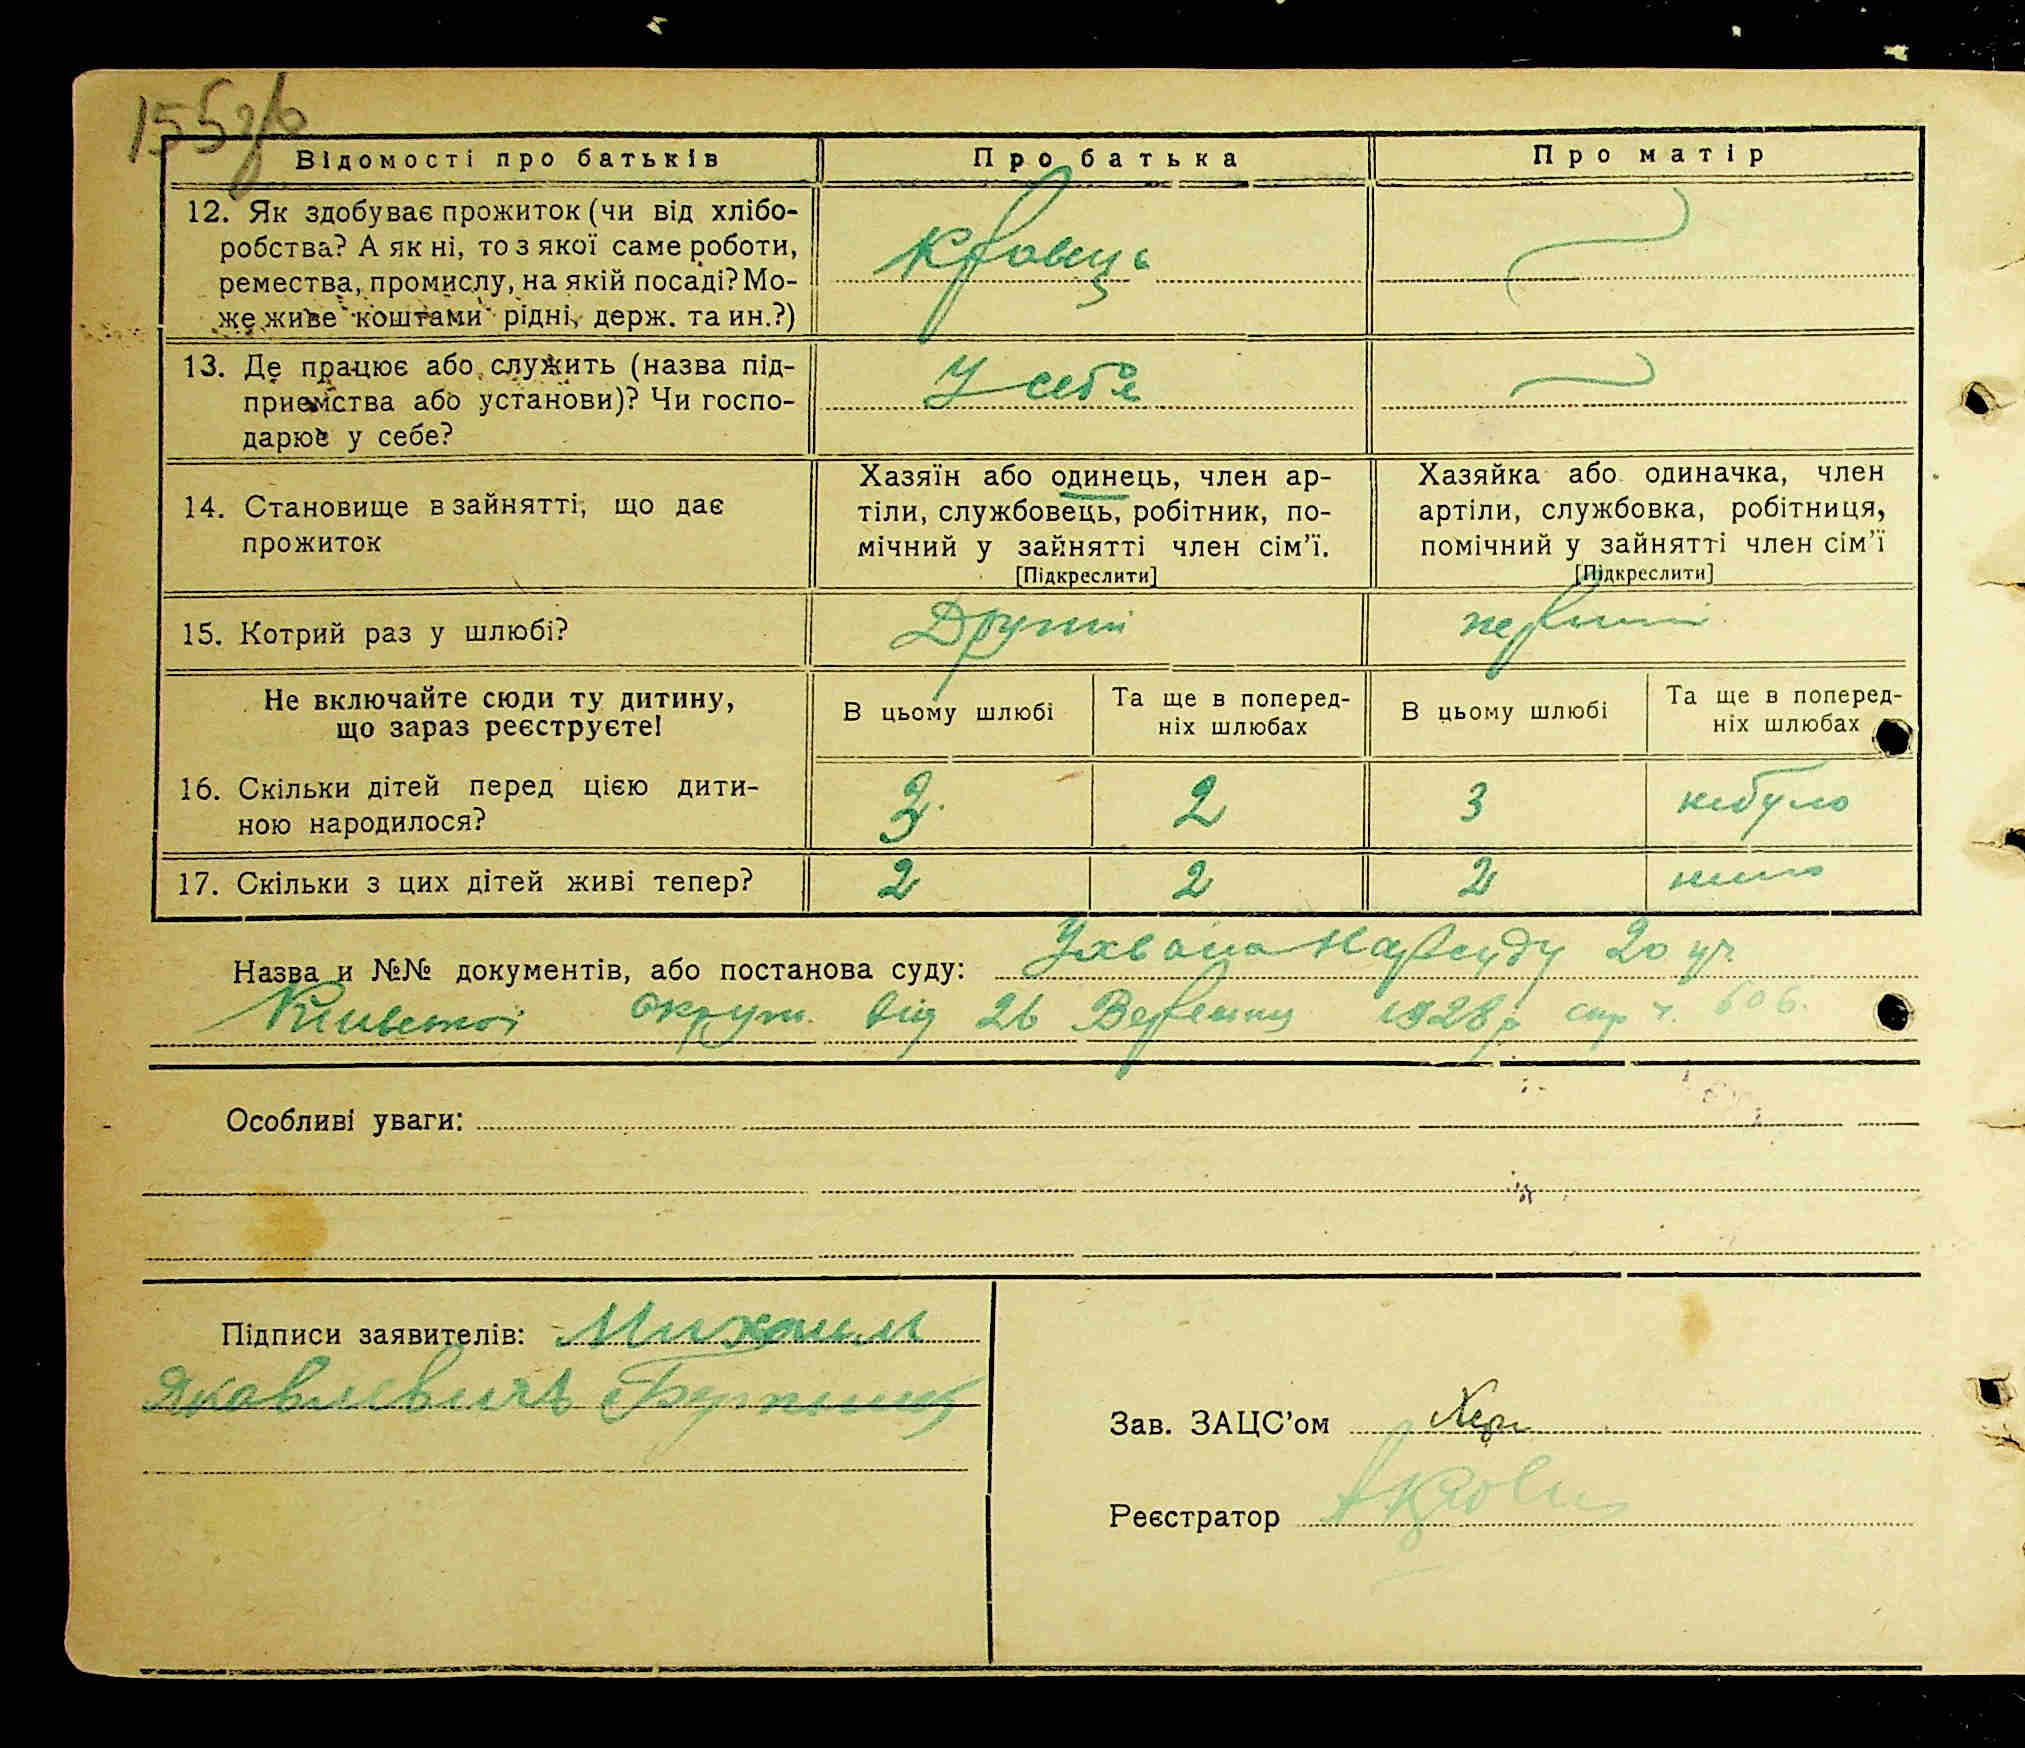 155зв
Відомості про батьків
Про батька
Про матір
12. Як здобуває прожиток (чи від хлібо-
робства? А як ні, то з якої саме роботи,
ремества, промислу, на якій посаді? Мо-
же живе коштами рідні, держ. та ин.?)
Кравець
13. Де працює або служить (назва під-
приемства або установи)? Чи госпо-
дарює у себе?
У себе
14. Становище в зайнятті, що дає
прожиток
Хазяїн або одинець, член ар-
тіли, службовець, робітник, по-
мічний у зайнятті член сім'ї.
[Підкреслити]
Хазяйка або одиначка, член
артіли, службовка, робітниця,
помічний у зайнятті член сім'ї
[Підкреслити]
15. Котрий раз у шлюбі?
Другий
первий
Не включайте сюди ту дитину,
що зараз реєструєте!
В цьому шлюбі
Та ще в поперед-
ніх шлюбах
В цьому шлюбі
Та ще в поперед-
ніх шлюбах
16. Скільки дітей перед цією дити-
ною народилося?
3
2
3
небуло
17. Скільки з цих дітей живі тепер?
2
2
2
Назва и №№ документів, або постанова суду: Ухвала Нарсуду 20 уч
Київської округи від 26 Вересня 1928р спр ч. 606.
Особливі уваги:
Підписи заявителів: Михаил
Яковлевич
Зав. ЗАЦС'ом
Реєстратор